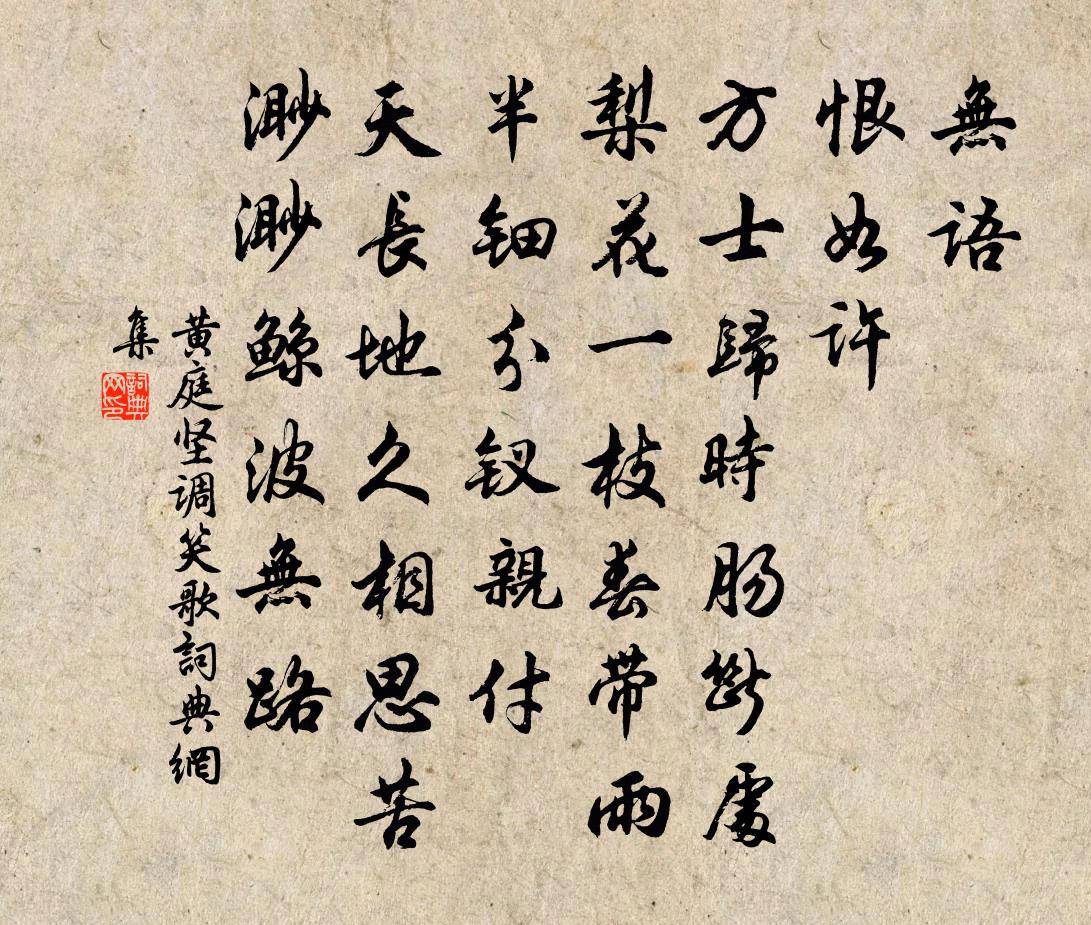 無語
恨如許
方士歸時腸斷處
梨花一枝春帶雨
半钿分钗親付
天長地久相思苦
渺渺鲸波無路
黄庭坚调笑歌詞典網
集
詞典
网印